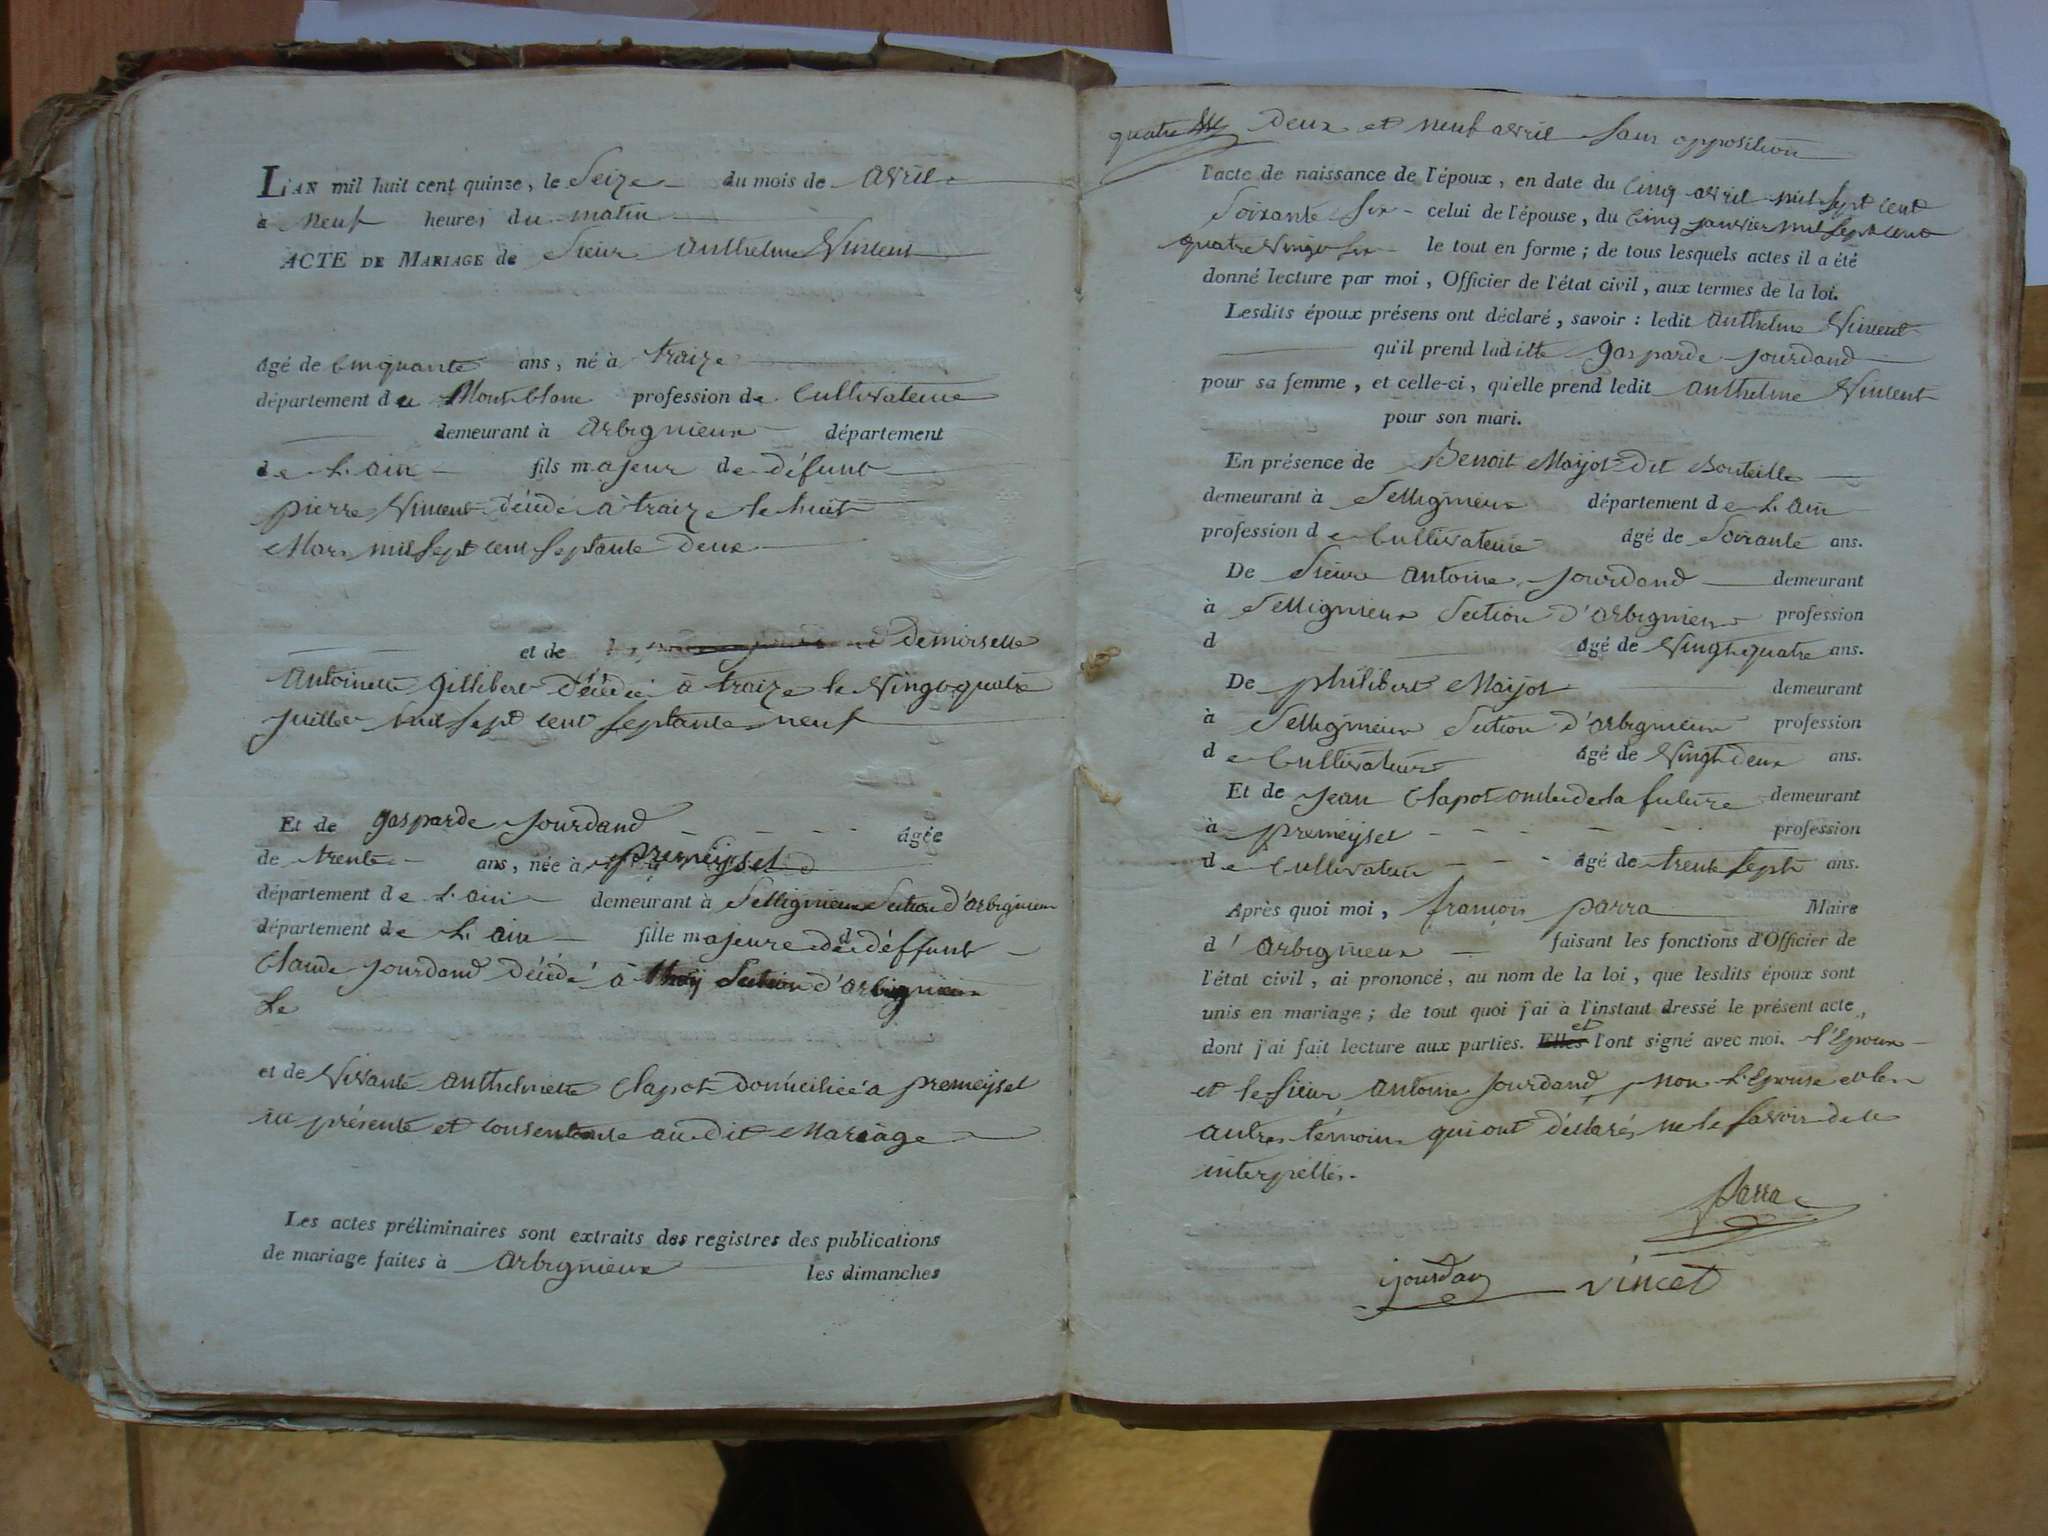 L'AN mil huit cent quinze, le Seize du mois de avril
à Neuf heures du matin
ACTE DE MARIAGE de Sieur Anthelme Vincent
âgé de Cinquante ans, né à traize
département du Montblanc profession de Cultivateur
demeurant à Arbignieux département
de L'ain fils majeur de défunt
pierre Vincent décédé à traize le huit
Mars mil sept cent septante deux
et de Demoiselle
Antoinette Gillibert décédée à traize le Vingt quatre
juillet mil sept cent septante neuf
Et de gasparde Jourdand âgée
de trente ans, née à premeysel
département de L'ain demeurant à Sellignieux Section d'arbignieux
département de L'ain fille majeure de déffunt
Claude Jourdand décédé à thoÿ Section d'arbignieux
Le
et de Vivante Anthelmette Clapot domiciliée à premeysel
ici présente et consentente au dit Mariage
Les actes préliminaires sont extraits des registres des publications
de mariage faites à Arbignieux les dimanches
deux et neuf avril sans opposition
l'acte de naissance de l'époux, en date du Cinq avril mil sept cent
Soixante Six celui de l'épouse, du Cinq janvier mil sept cent
quatre vingt six le tout en forme; de tous lesquels actes il a été
donné lecture par moi, Officier de l'état civil, aux termes de la loi.
Lesdits époux présens ont déclaré, savoir : ledit Anthelme Vincent
qu'il prend laditte gasparde Jourdand
pour sa femme, et celle-ci, qu'elle prend ledit Anthelme Vincent
pour son mari.
En présence de Benoit Maijot dit Bouteille
demeurant à Sellignieux département de L'ain
profession de Cultivateur âgé de Soixante ans.
De Sieur Antoine Jourdand demeurant
à Sellignieux Section d'Arbignieux profession
d âgé de Vingt quatre ans.
De philibert Maijot demeurant
à Sellignieux Section d'arbignieux profession
de Cultivateur âgé de Vingt deux ans.
Et de Jean Clapot oncle de la future demeurant
à premeysel profession
de Cultivateur âgé de trente Sept ans.
Après quoi moi, françois parra Maire
d'Arbignieux faisant les fonctions d'Officier de
l'état civil, ai prononcé, au nom de la loi, que lesdits époux sont
unis en mariage; de tout quoi j'ai à l'instant dressé le présent acte,
dont j'ai fait lecture aux parties. Elles et l'ont signé avec moi. l'Epoux
et le sieur Antoine Jourdand, non L'Epouse et les
autres témoins qui ont déclarés ne le savoir de ce
interpellés.
Parra
jourdan Vincet